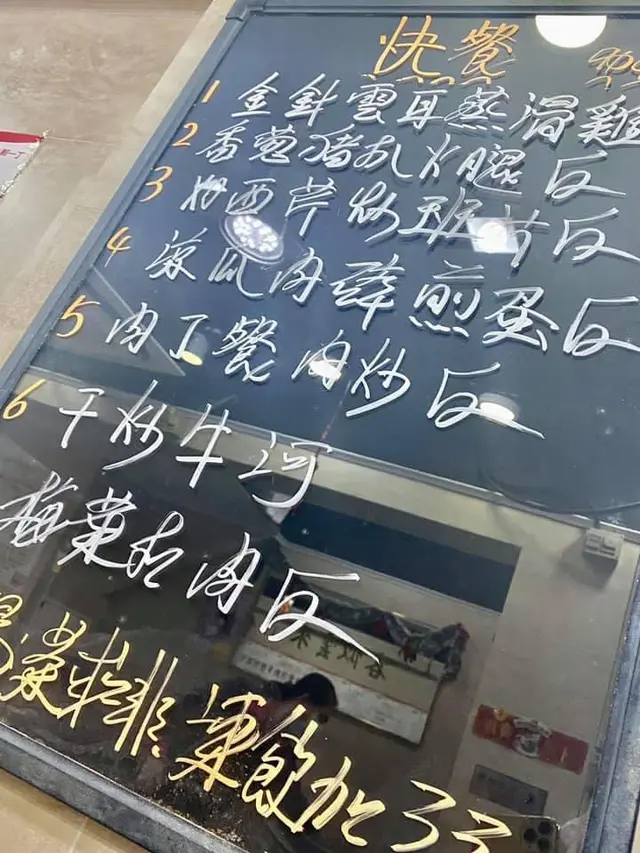 快餐
1 金針雲耳蒸滑雞
2 香葱豬扒火腿反
3 西芹炒班片反
4 涼瓜肉碎煎蛋反
5 肉丁餐肉炒反
6 干炒牛河
梅菜扣肉反
凍飲加3元